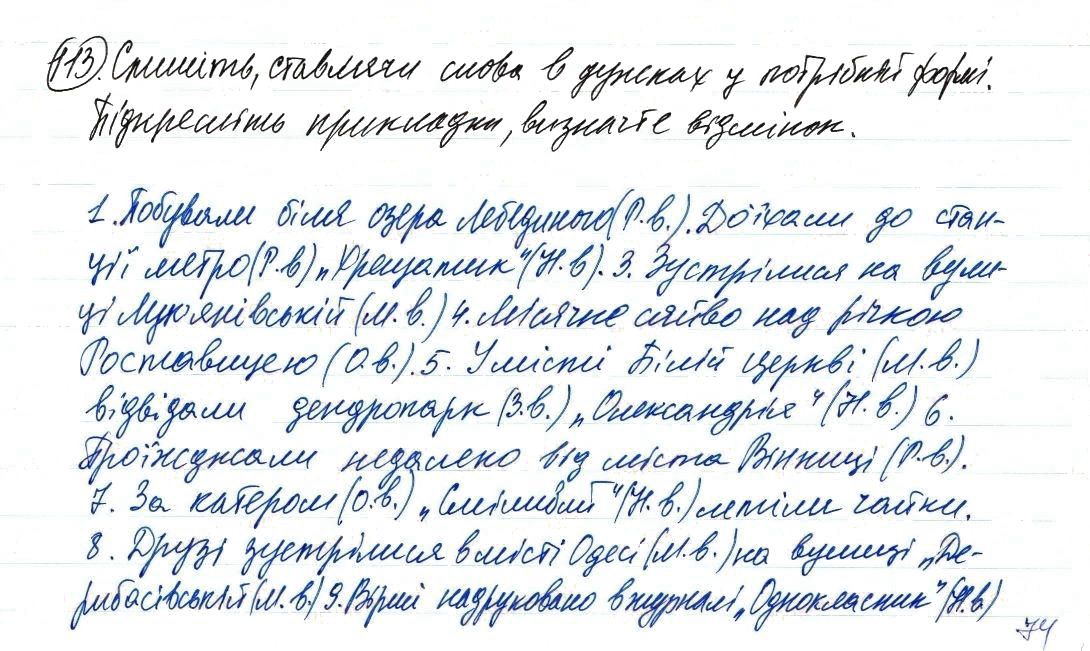 113. Спишіть, ставлячи слова в дужках у потрібній формі.
Підкресліть прикладки, визначте відмінок.
1. Побували біля озера Лебединого (Р.в.). Доїхали до стан-
ції метро (Р.в) „Хрещатик" (Н.в). 3. Зустрілися на вули-
ці Лук'янівській (М.в.) 4. Місячне сяйво над річкою
Роставицею (О.в.). 5. У місті Білій Церкві (М.в.)
відвідали дендропарк (З.в.) „Олександрія" (Н.в.) 6.
Проїжджали недалеко від міста Вінниці (Р.в.).
7. За катером (О.в.) „Сміливий" (Н.в.) летіли чайки.
8. Друзі зустрілися в місті Одесі (М.в.) на вулиці „Де-
рибасівській (М.в.) 9. Вірші надруковано в журналі „Однокласник" (Н.в)
74